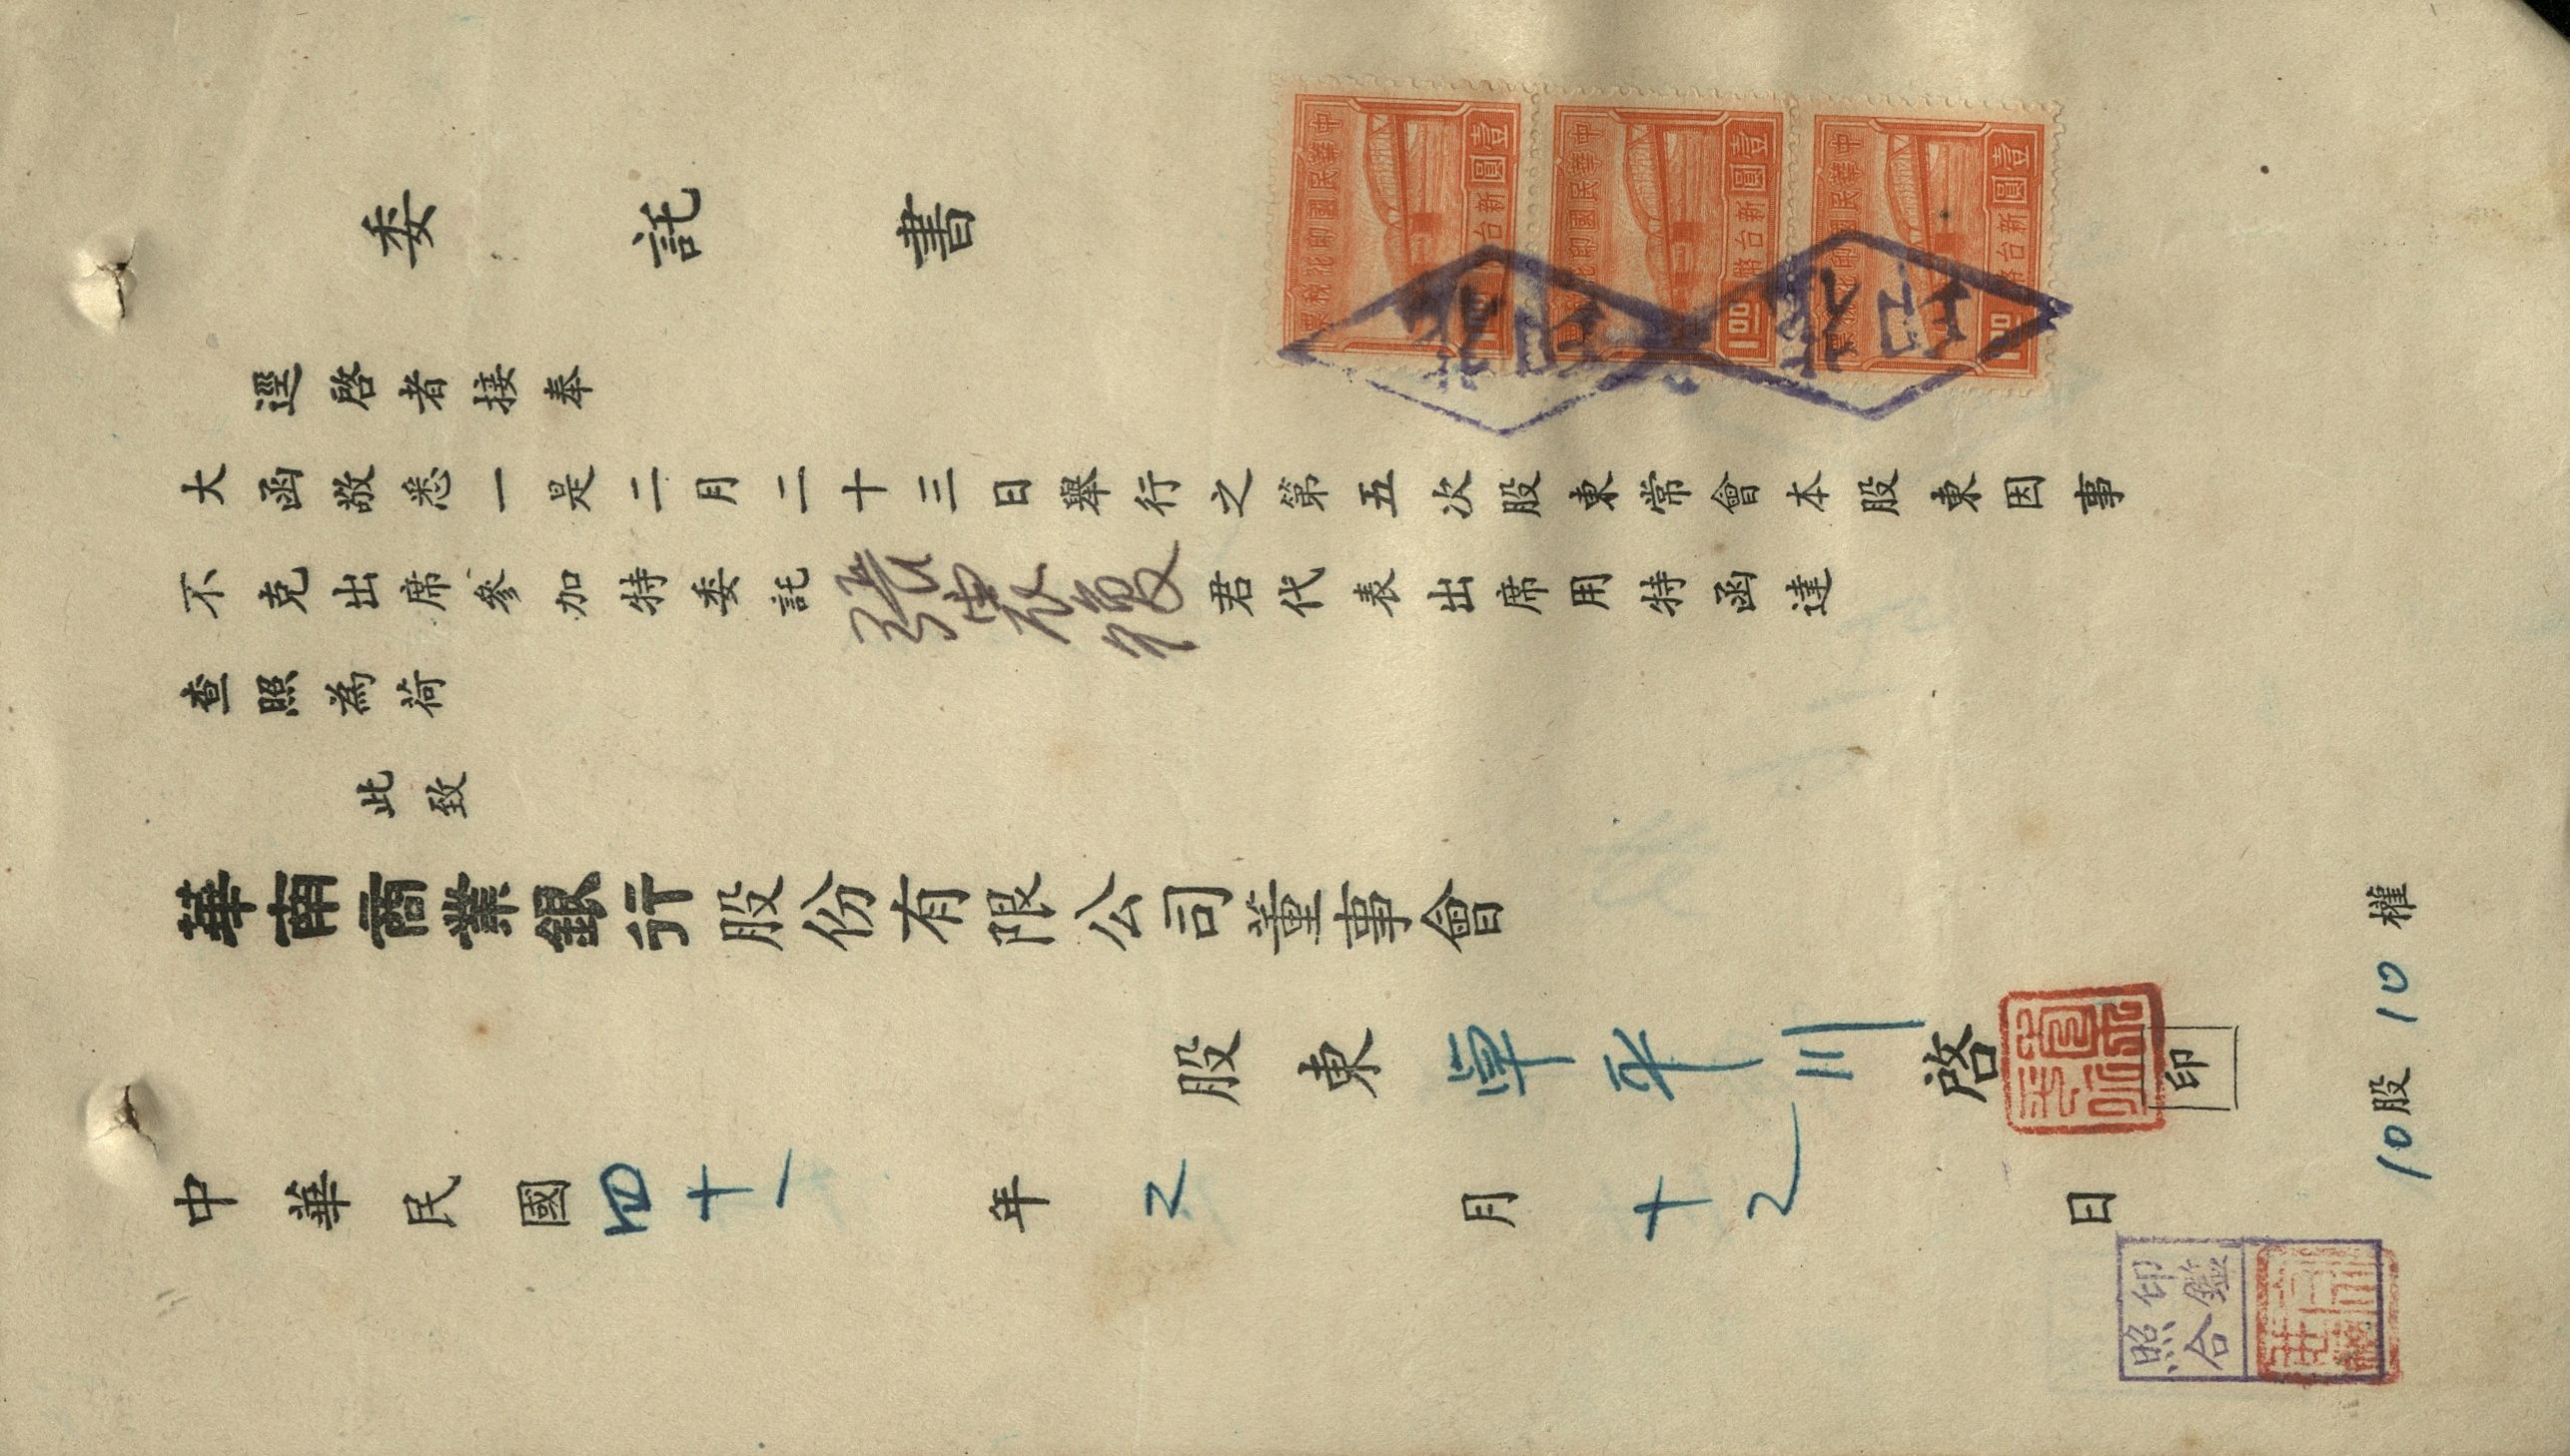 委託書
逕啓者接奉
大函敬悉一是二月二十三日舉行之第五次股東常會本股東因事
不克出席參加特委託張君代表出席用特函達
查照為荷
此致
華南商業銀行股份有限公司董事會
股東 平川 啓
印
中華民國四十一年2月十2日
10股10權
印鑑
照合
中華民國印花稅票
壹圓
新台幣
1.00
中華民國印花稅票
壹圓
新台幣
1.00
中華民國印花稅票
壹圓
新台幣
1.00